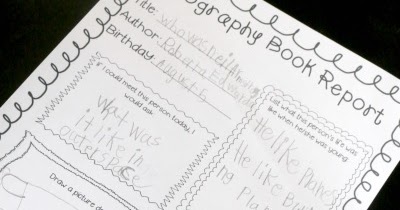 ography Book Report
Title: Who was neil Armstrong
Author: Roberta Edwards
Birthday: August 5
If I could meet this person today, I
would ask:
What was
it like in
outer space
List what this person's life was
like when he/she was young.
He like Planes
He like Buildi
ng Plan
Draw a picture d